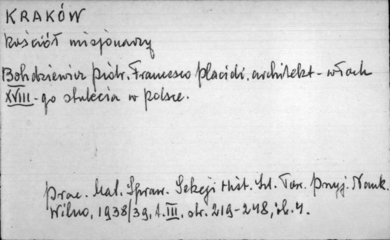 KRAKÓW
kościół misjonarzy
Bohdziewicz Piotr. Francesco Placidi. architekt - włoch
XVIII-go stulecia w Polsce.
Prac. Mat. Spraw. Sekcji Hist. Szt. Tow. Przyj. Nauk.
Wilno, 1938/39, t. III, str. 219-248, il. 4.